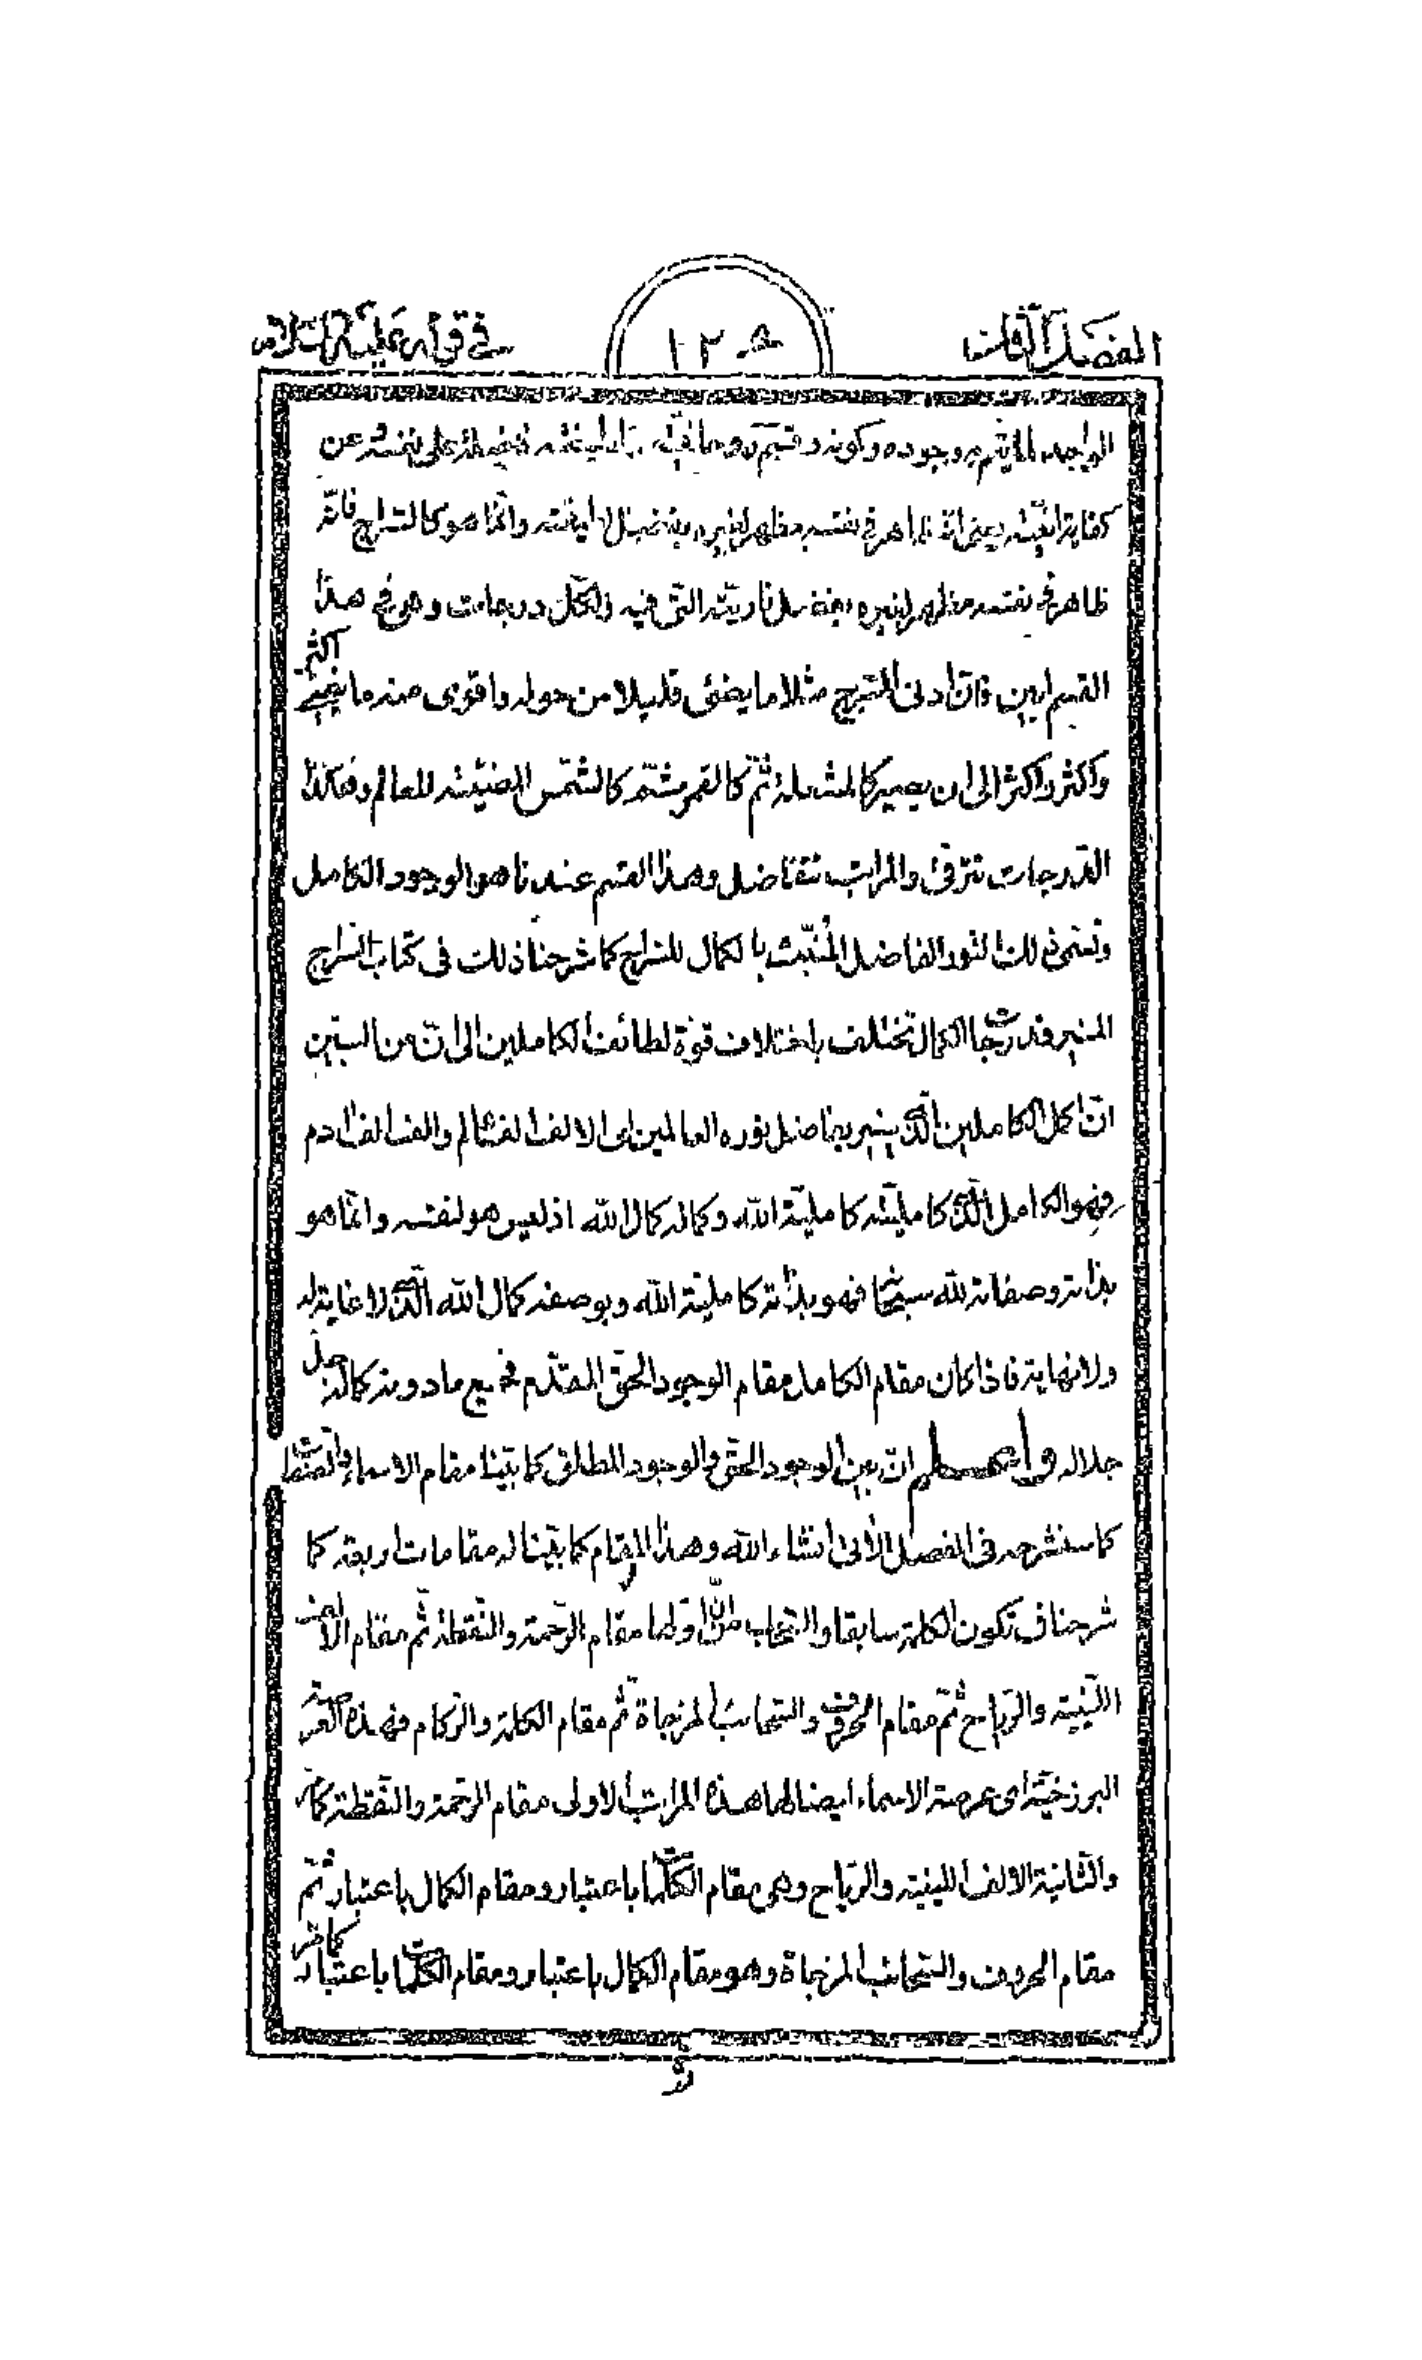 الفصل الثالث
١٢٥
في قوله عليه السلام
وجوده وكونه وقسم على نفسه عن
كفاية انيته يعني انه ظاهر في نفسه مظهر لغيره بفضل انيته وانما هو كالسراج فانه
ظاهر في نفسه مظهر لغيره بفضل ناريته التي فيه ولكل درجات وهو في هذا
القسم ابين فان ادنى السرج مثلا ما يضئ قليلا من حوله واقوى منه ما يضيئ اكثر
واكثر واكثر الى ان يصير كالمشعلة ثم كالقمر ثم كالشمس المضيئة للعالم وهكذا
الدرجات تترقى والمراتب تتفاضل وهذا القسم عندنا هو الوجود الكامل
ونسمى ذلك النور الفاضل المنبث بالكمال للسراج كما شرحنا ذلك في كتاب السراج
المنير فدرجات الكمال تختلف باختلاف قوة لطائف الكاملين الى ان من البين
ان اكمل الكاملين الذي ينير بفاضل نوره العالمين اى الالف الف عالم والف الف ادم
فهو الكامل الذي كامليته كاملية الله وكماله كمال الله اذ ليس هو لنفسه وانما هو
بذاته وصفاته لله سبحانه فهو بذاته كاملية الله وبوصفه كمال الله الذي لا غاية له
ولا نهاية فاذا كان مقام الكامل مقام الوجود الحق المقدم فجميع ما دونه كماله جل
جلاله واعلم ان بين الوجود الحق والوجود المطلق كما بينا مقام الاسماء والصفات
كما سنشرحه في الفصل الآتى انشاء الله وهذا المقام كما بينا له مقامات اربعة كما
شرحنا في تكون الكلمة سابقا والسحاب اولها مقام الرحمة والنقطة ثم مقام الالف
اللينية والرياح ثم مقام الحروف والسحاب المزجاة ثم مقام الكلمة والركام فهذه العرصة
البرزخية اى عرصة الاسماء ايضا لها هذه المراتب الاولى مقام الرحمة والنقطة
والثانية الالف اللينية والرياح وهي مقام باعتبار ومقام الكمال باعتبار ثم
مقام الحروف والسحاب المزجاة وهو مقام الكمال باعتبار ومقام باعتبار كما مر